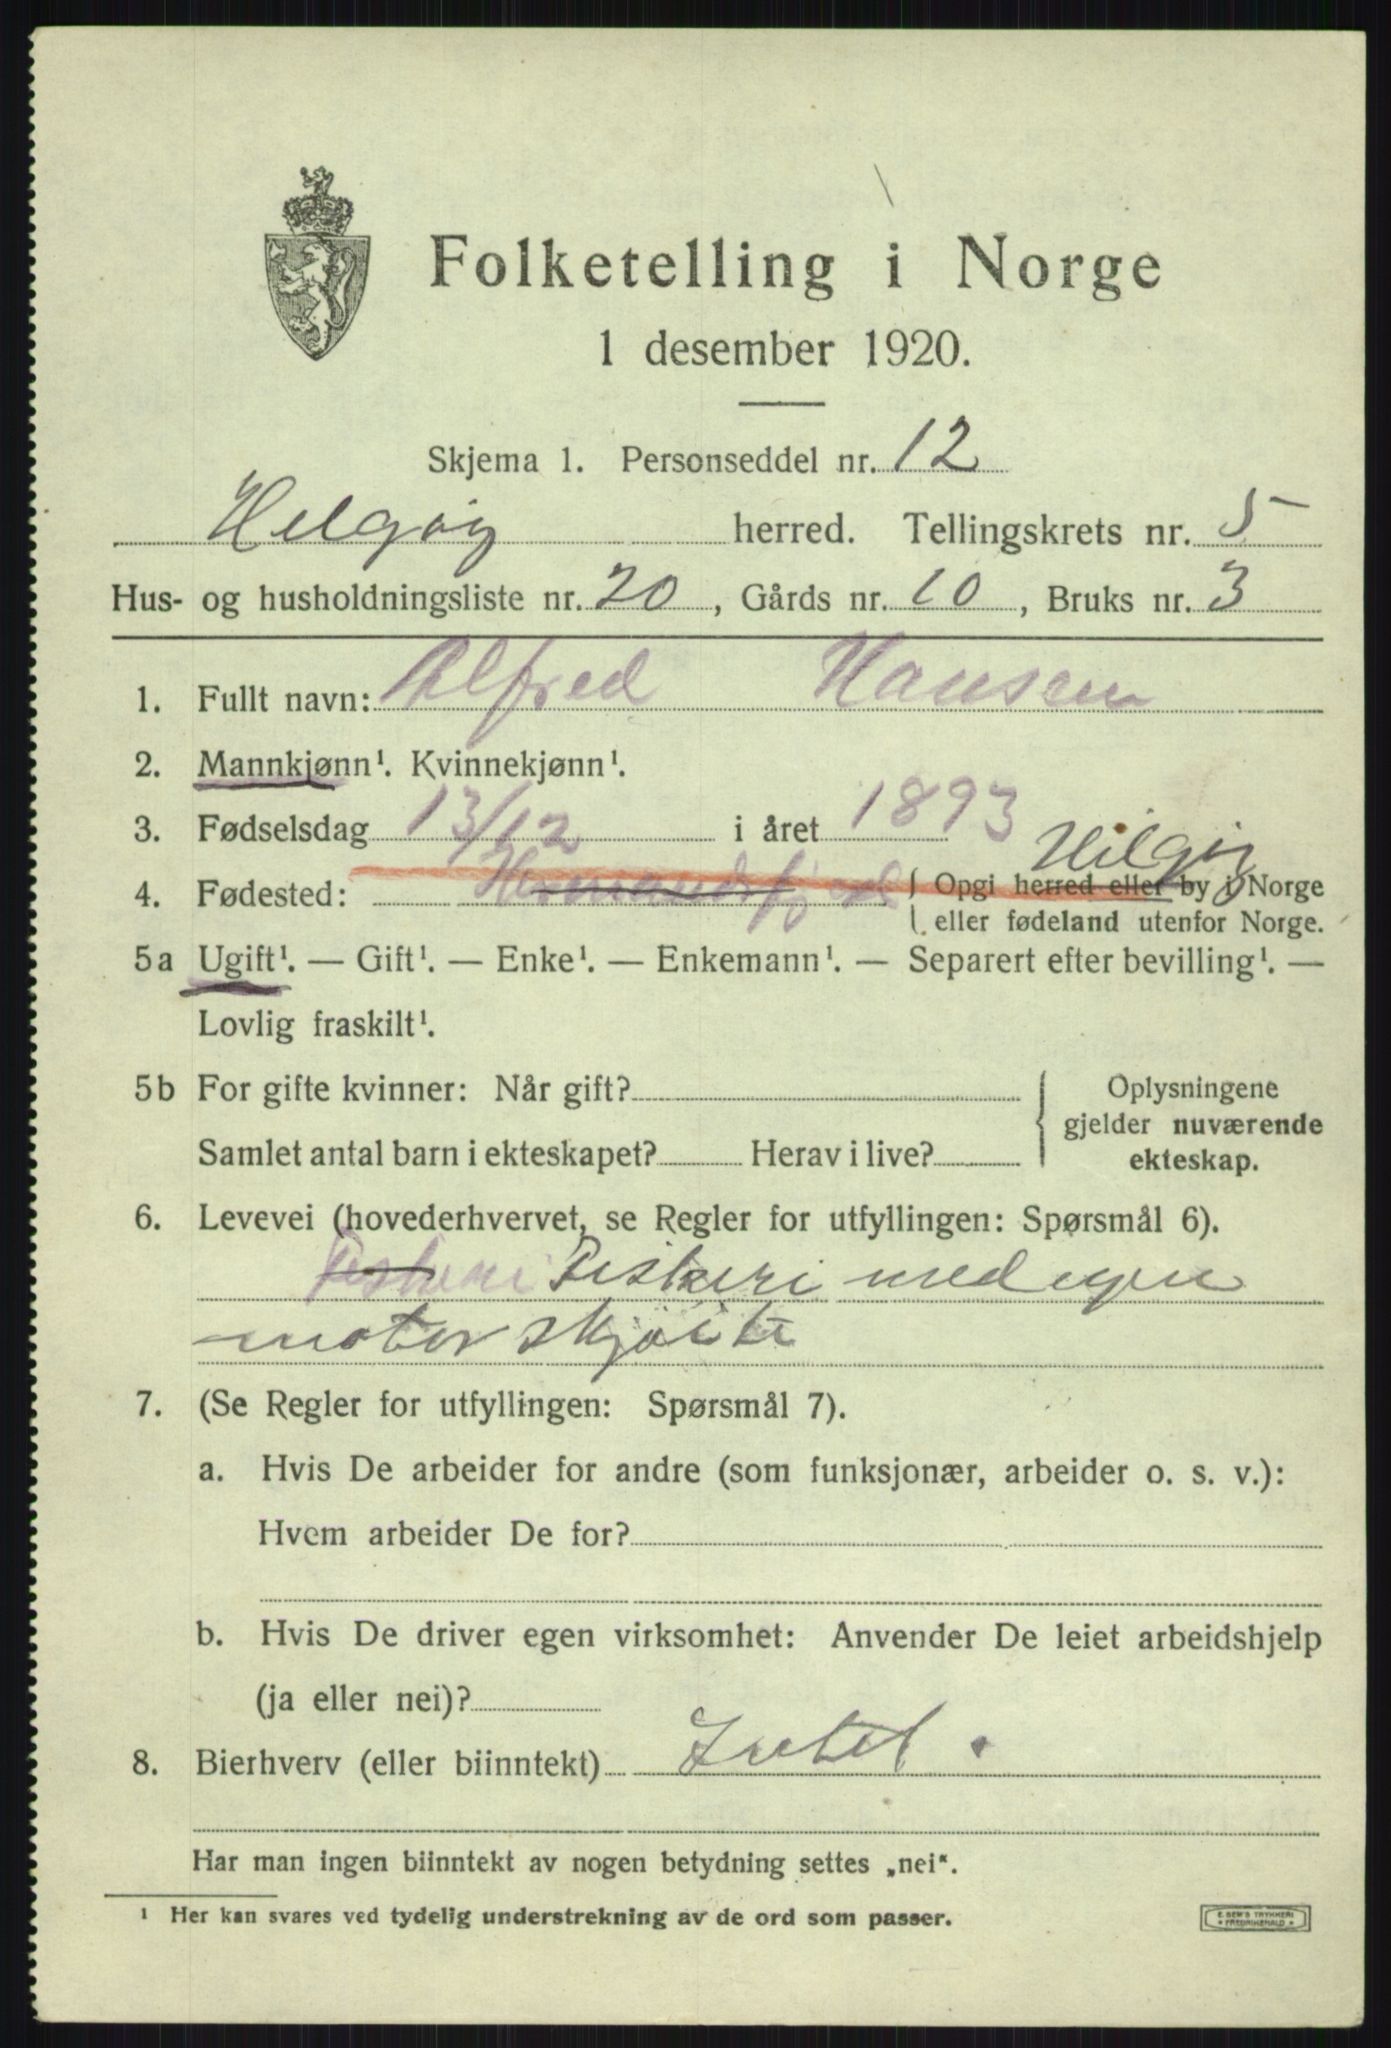 Folketelling i Norge
1 desember 1920.
Skjema 1. Personseddel nr. 12
Helgøy herred. Tellingskrets nr. 5
Hus- og husholdningsliste nr. 20, Gårds nr. 10, Bruks nr. 3
1. Fullt navn: Alfred Hansen
2. Mannkjønn¹. Kvinnekjønn¹.
3. Fødselsdag 13/12 i året 1893
Helgøy
4. Fødested: Hermandsfjord { Opgi herred eller by i Norge
eller fødeland utenfor Norge.
5a Ugift¹. — Gift¹. — Enke¹. — Enkemann¹. — Separert efter bevilling¹. —
Lovlig fraskilt¹.
5b For gifte kvinner: Når gift? { Oplysningene
gjelder nuværende
Samlet antal barn i ekteskapet? Herav i live? ekteskap.
6. Levevei (hovederhvervet, se Regler for utfyllingen: Spørsmål 6).
Fiskeri Fiskeri med egen
motorskjøite
7. (Se Regler for utfyllingen: Spørsmål 7).
a. Hvis De arbeider for andre (som funksjonær, arbeider o. s. v.):
Hvem arbeider De for?
b. Hvis De driver egen virksomhet: Anvender De leiet arbeidshjelp
(ja eller nei)?
8. Bierhverv (eller biinntekt) Intet.
Har man ingen biinntekt av nogen betydning settes „nei".
¹ Her kan svares ved tydelig understrekning av de ord som passer.
E. SEM'S TRYKKERI
* FREDRIKSHALD *